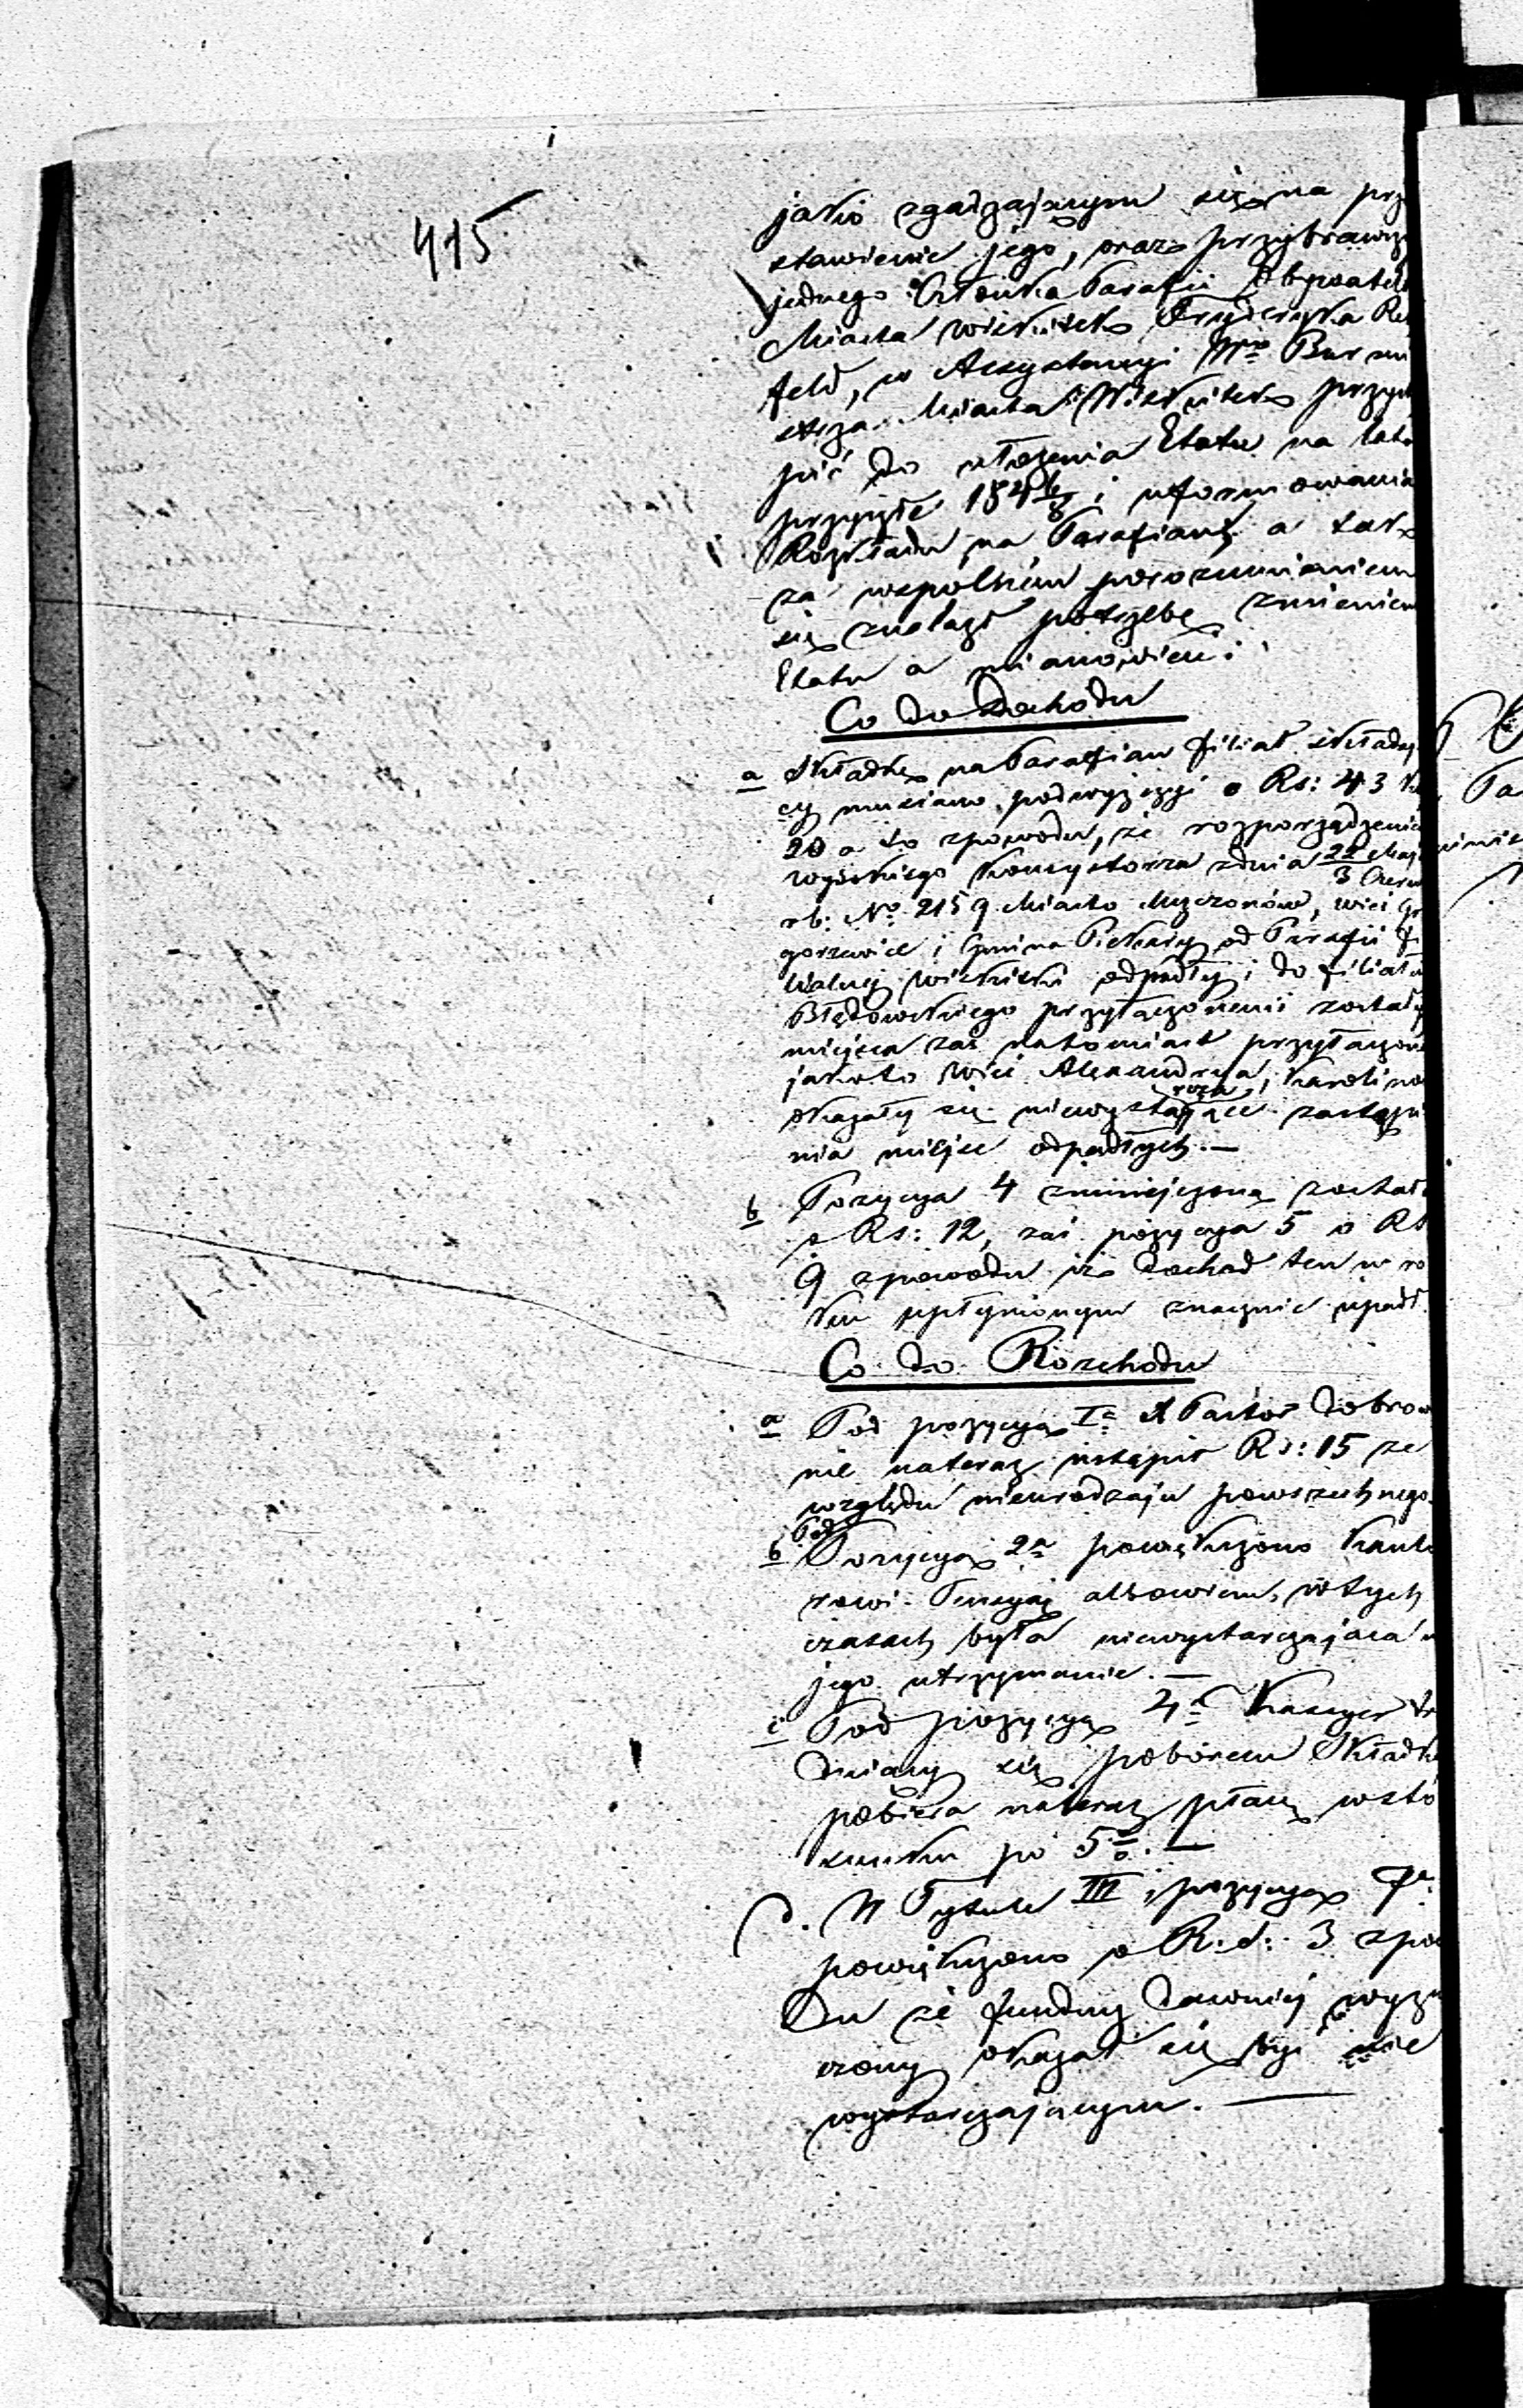 415
jako zgadzającym się na prz
stawienie jego, oraz przybrawszy
jednego Członka Parafii Obywatela
Miasta Wiskitek Fryderyka
feld, w Assystencyi Burmi
strza Miasta Wiskitek przystą
pić do ułożenia Etatu na lata
przyszłe 184 i uformowania
Rozkładu na Parafian, a tak
za wspolném porozumieniem
się znalazł potrzebę zmienien
Etatu a mianowicie:
Co do Dochodu
a Składkę na Parafian filiał składaj
cy musiano podwyższyć o Rs: 43 k
20 a to zpowodu, że rozporządzenie
wyższkiego Konsystorza z dnia 22 Maj
3 Czerw
rb: No 2159 Miasto Mszczonów, wieś Gr
gorzewice i Gmina Piekary od Parafii fi
lialnej Wiskitki odpadły i do filiału
Błędowskiego przyłączonemi zostały
miejsca zaś natomiast przyłączone
jakoto Wieś Alexandrya, Karolino
okazały się niewystarczające zastąpie
nia miejsc odpadłych.—
b Pozycya 4 zmniejszoną została
o Rs: 12, zaś pozycya 5 o Rs
9 zpowodu iż Dochód ten w ro
ku upłynionym znacznie upadł.
Co do Rozchodu
a Pod pozycyą Ią X Pastor Dobrowol
nie nateraz ustąpił Rs: 15 ze
względu nieurodzaju powszechnego.
b Pod Pozycyą 2ą powiększono Kanto
rowi Pensyą albowiem, w tych
czasach była niewystarczająca n
jego utrzymanie.—
c Pod pozycyą 4ą Kassyer tr
dniący się poborem Składki
pobiera nateraz płacę wsto
sunku po 5%.—
d. W Tytule III, pozycyą 7ą
powiększono o R.s: 3 zpowo
du że fundusz dawniej wyzn
czony okazał się być nie
wystarczającym.—